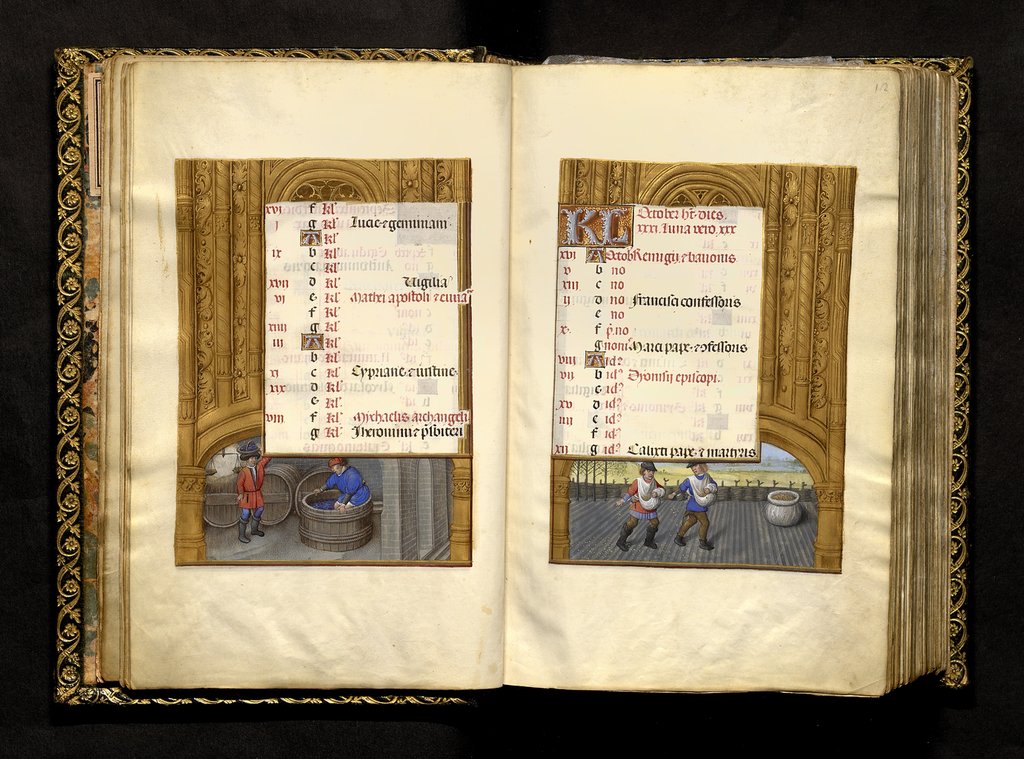 xvi f kl'
i g kl' Lucie et geminiani
A kl'
ix b kl'
c kl'
xvii d kl' Vigilia
vi e kl' Mathei apostoli et euua
f kl'
xiiii g kl'
iii A kl'
b kl'
xi c kl' Cypriane et iustine
xix d kl'
e kl'
viii f kl' Michaelis archangeli
g kl' Iheronimi et pbiteri
12
KL October ht dies
xxxi Luna vero xxx
xvi A Octob Remigij et bauonis
v b no
xiii c no
ii d no Francisci confessoris
e no
x f p no
g noni Marci pape et ofessoris
viii A id'
vii b id' Dyonisii episcopi
c id'
xv d id'
iiii e id'
f id'
xii g id' Calixti pape et martyris